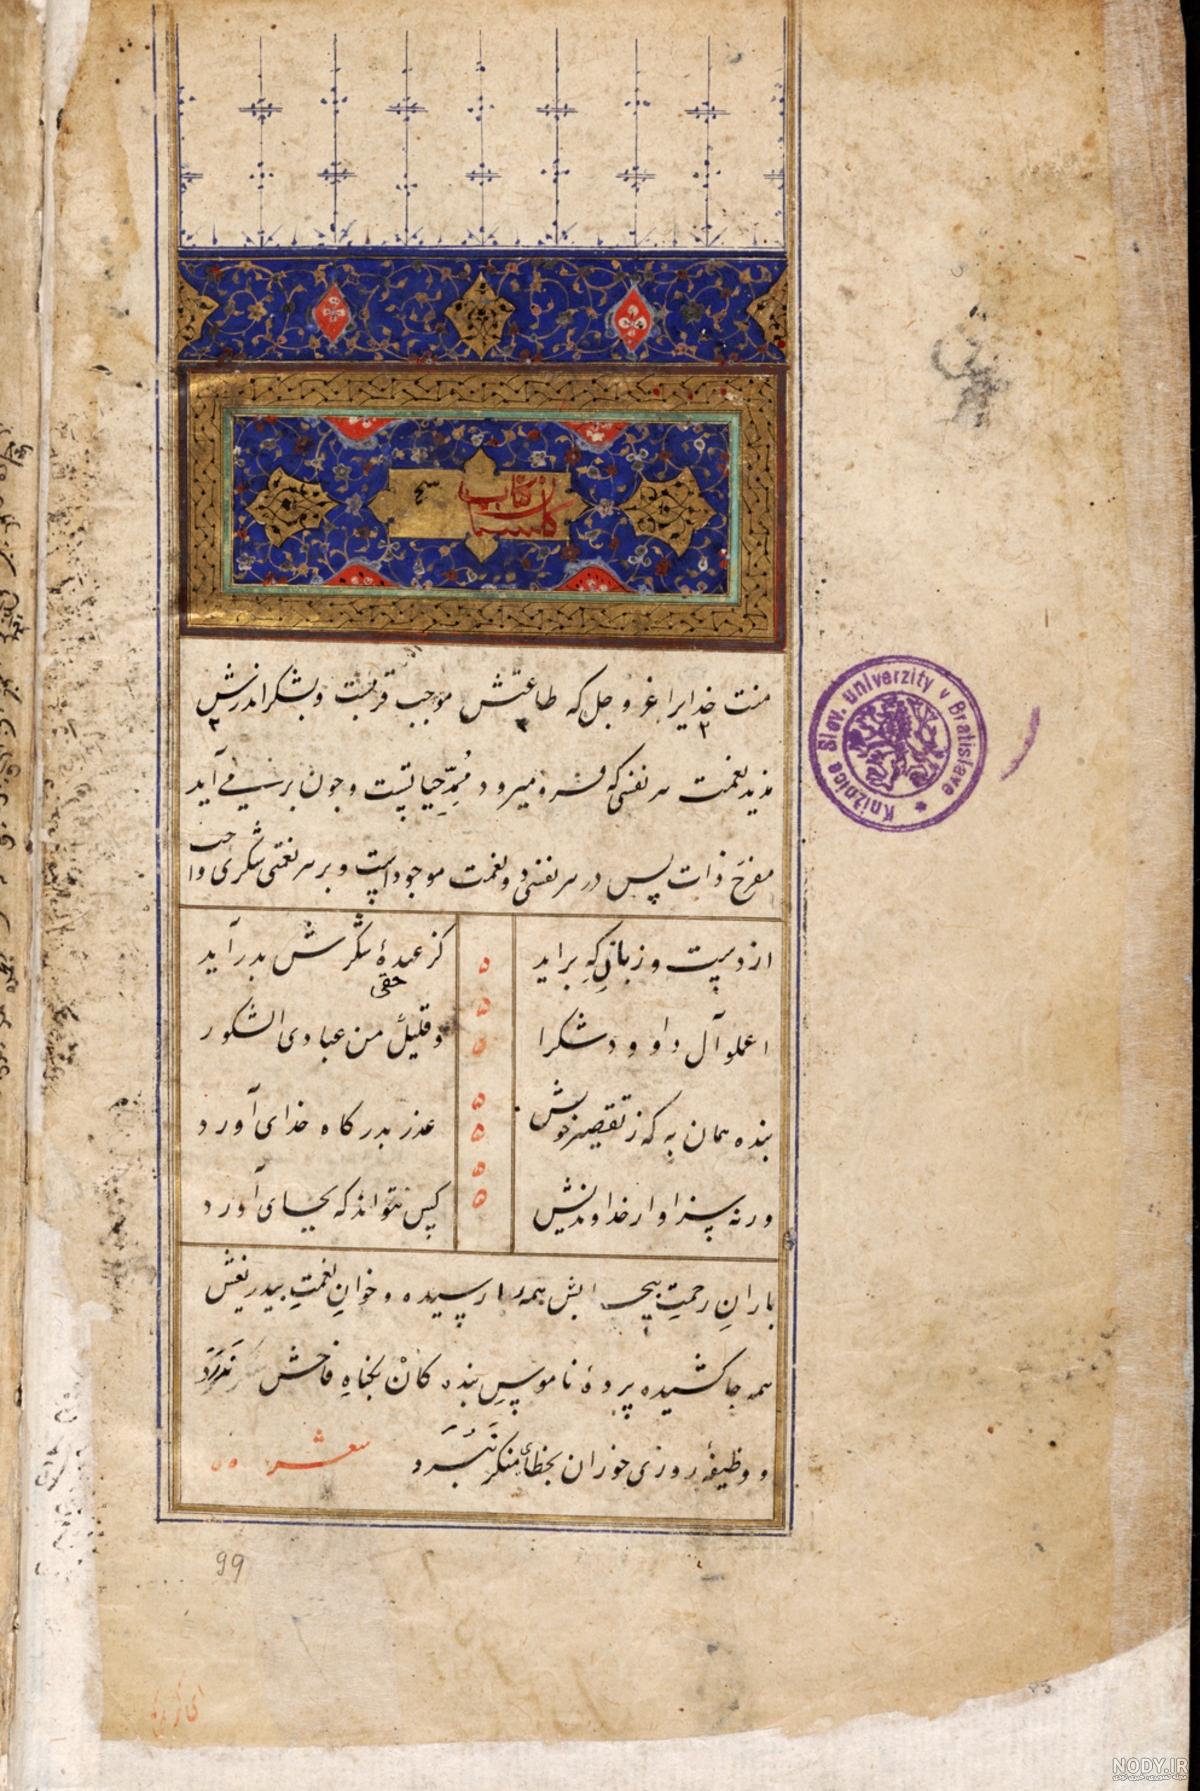 کتاب
گلستان
منت خدایرا عز و جل که طاعتش موجب قربتست و بشکر اندرش
مزید نعمت هر نفسی که فرو میرود مُمِدّ حیاتست و چون بر می آید
مفرّح ذات پس در هر نفسی دو نعمت موجود است و بر هر نعمتی شکری واجب
از دست و زبانِ که براید کز عهدهٔ شکرش بدر آید
حقی
اعملو آل داوود شکرا و قلیلٌ من عبادی الشکور
بنده همان به که ز تقصیر خویش عذر بدرگاه خدای آورد
ورنه سزاوار خداوندیش کس نتواند که بجای آورد
بارانِ رحمتِ بیحسابش همه را رسیده و خوانِ نعمتِ بیدریغش
همه جا کشیده پردهٔ ناموسِ بندهکانْ بکناهِ فاحش نَدَرَد
و وظیفهٔ روزی خوران بخطأ منکر نَبُرَد شعر
Knižnica Slov. univerzity v Bratislave
99
NODY.IR